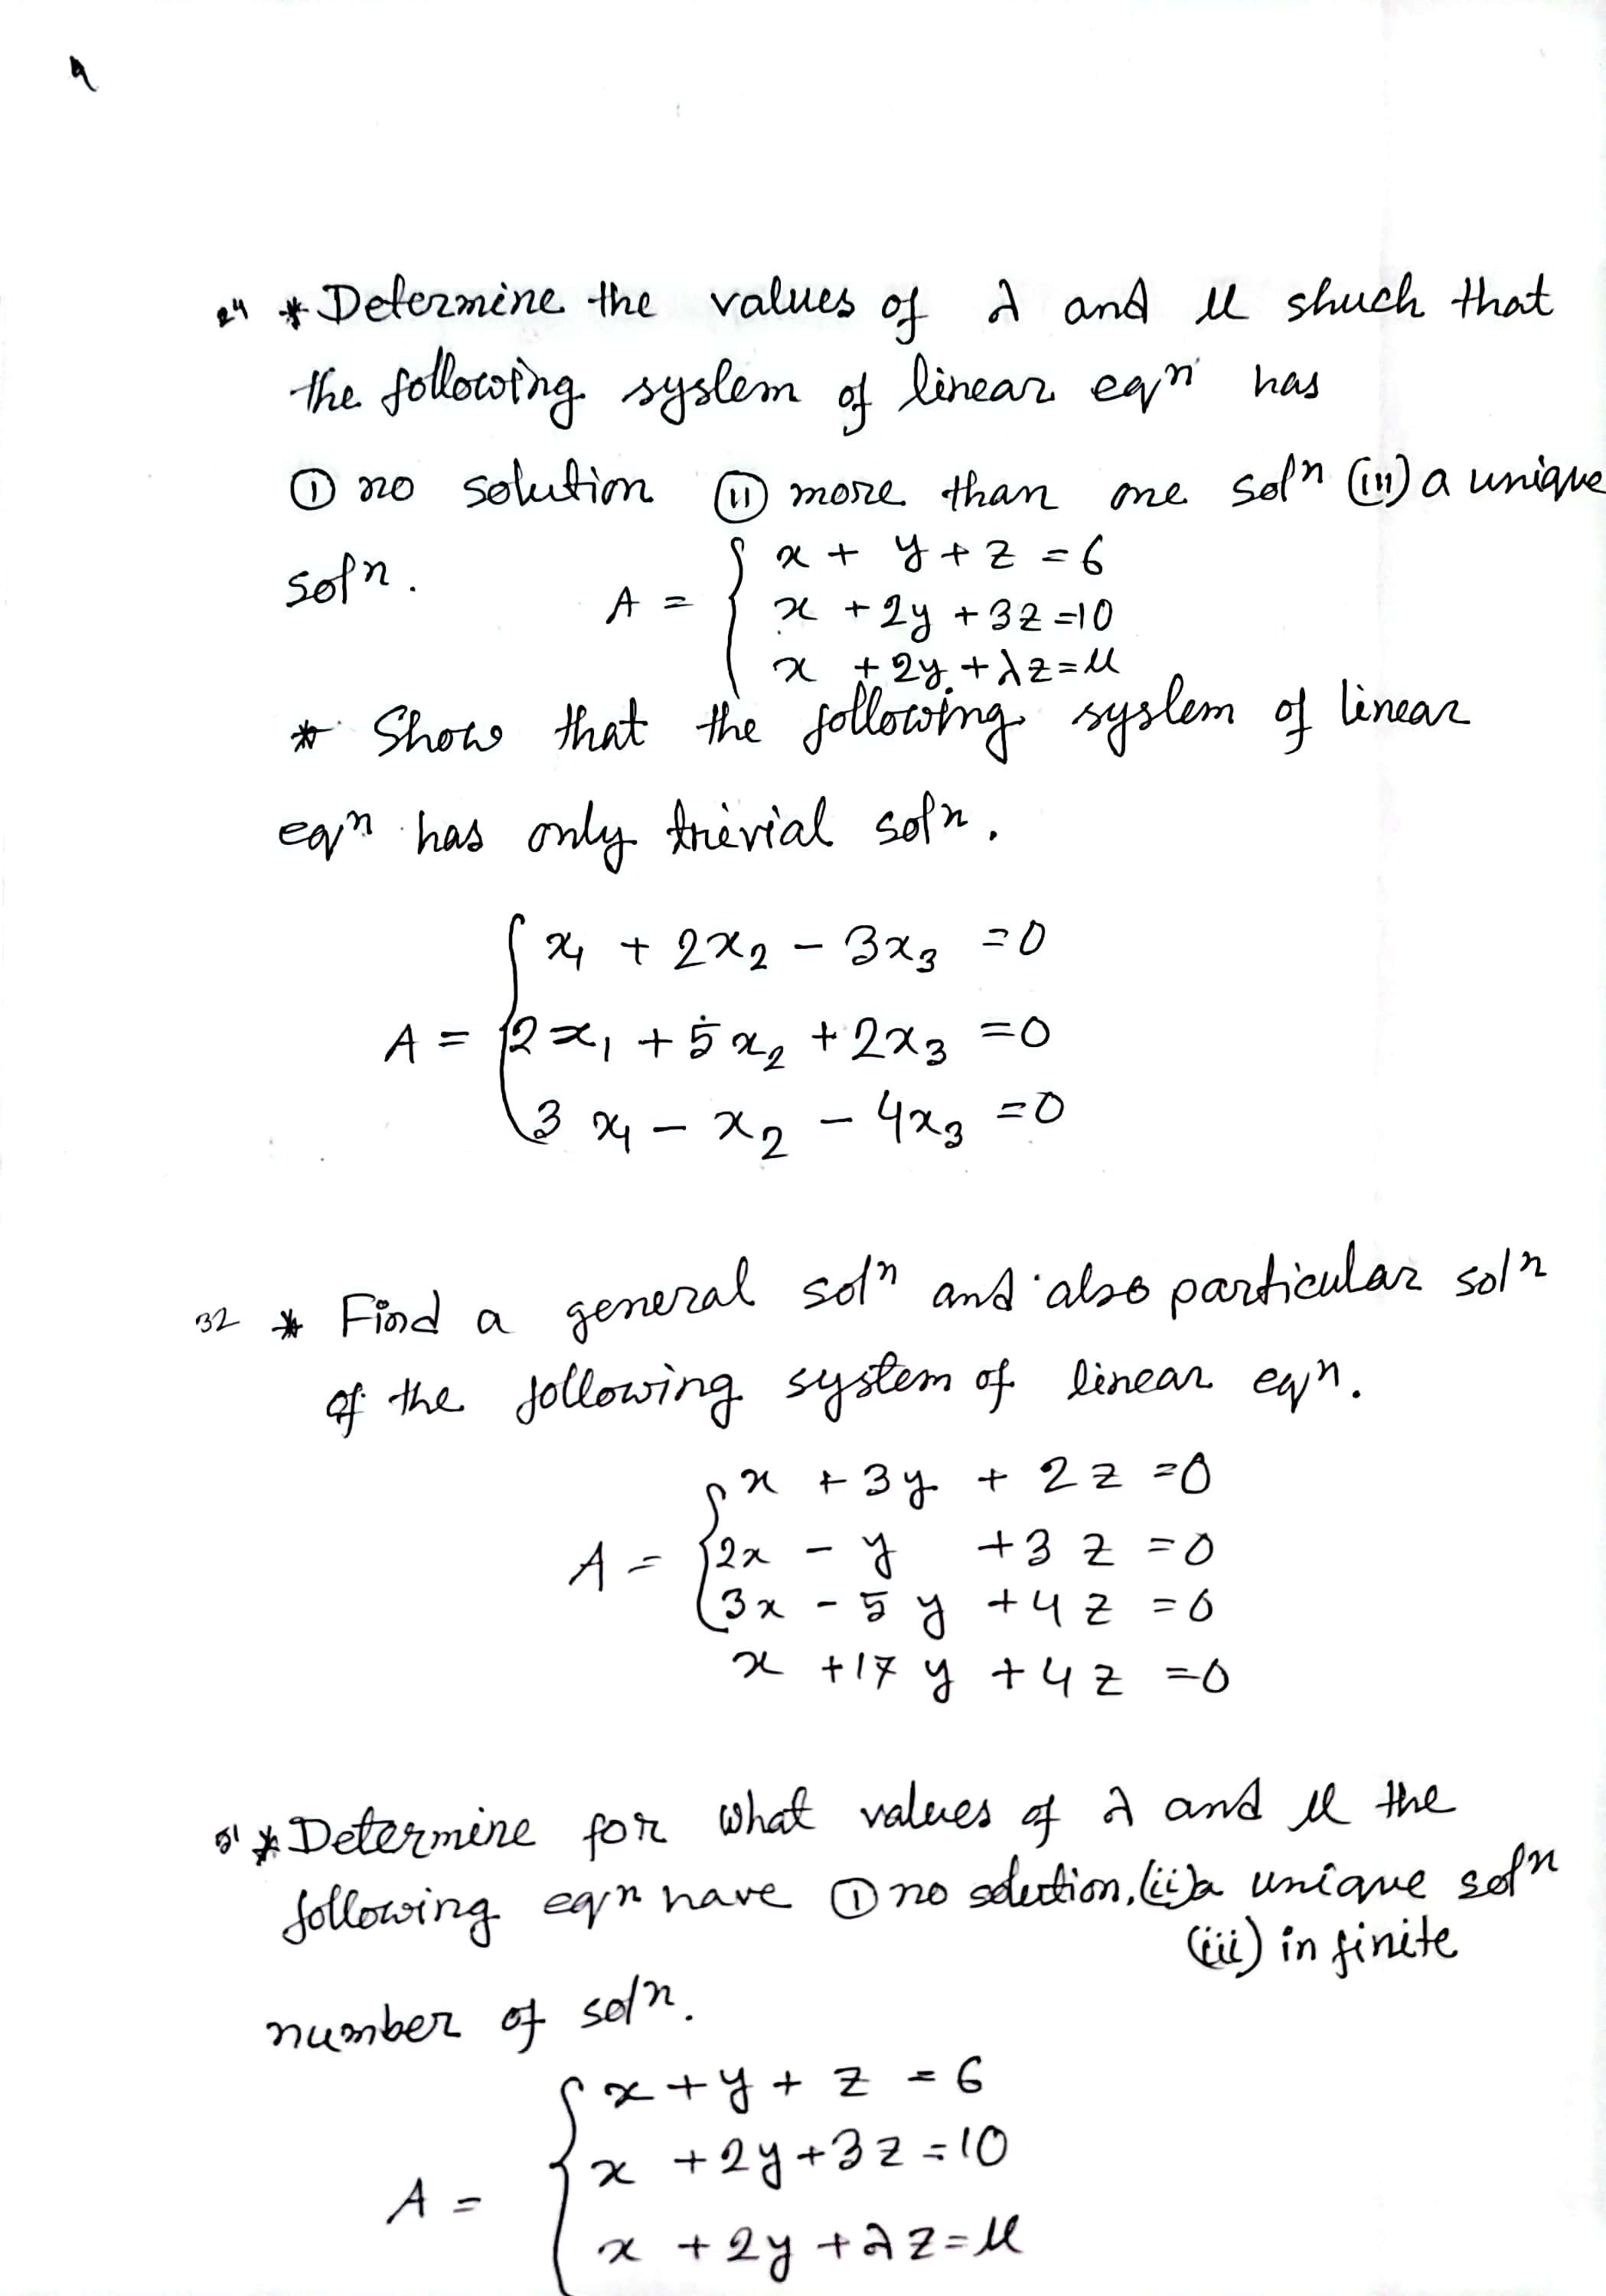 24 * Determine the values of λ and μ shuch that
the following system of linear eqn has
① no solution ⑪ more than one soln (iii) a unique
soln.
x + y + z = 6
A = { x + 2y + 3z = 10
x + 2y + λz = μ
* Show that the following system of linear
eqn has only trivial soln.
x1 + 2x2 - 3x3 = 0
A = { 2x1 + 5x2 + 2x3 = 0
3x1 - x2 - 4x3 = 0
32 * Find a general soln and also particular soln
of the following system of linear eqn.
x + 3y + 2z = 0
A = { 2x - y + 3z = 0
3x - 5y + 4z = 0
x + 17y + 4z = 0
51 * Determine for what values of λ and μ the
following eqn have ① no solution, (ii) a unique soln
(iii) in finite
number of soln.
x + y + z = 6
x + 2y + 3z = 10
A = {
x + 2y + λz = μ